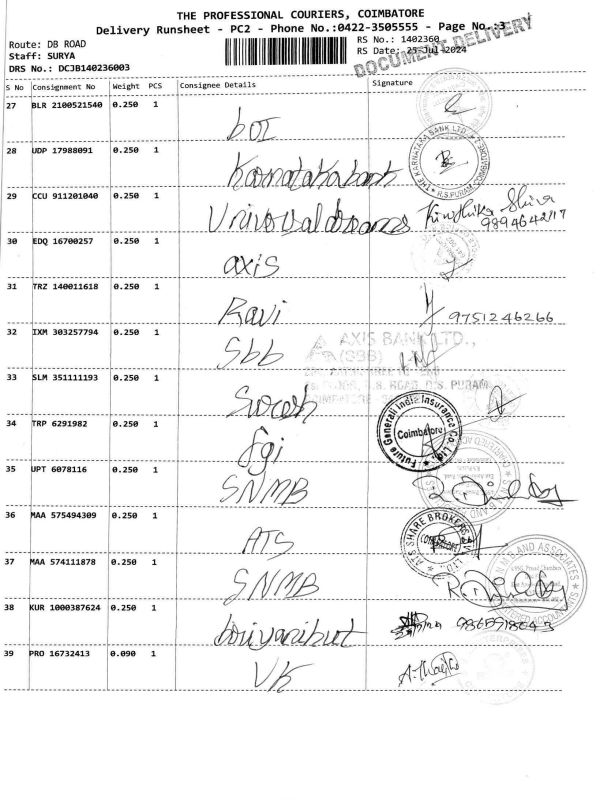 THE PROFESSIONAL COURIERS, COIMBATORE
Delivery Runsheet - PC2 - Phone No.:0422-3505555 - Page No.:3
Route: DB ROAD
Staff: SURYA
DRS No.: DCJB140236003
RS No.: 1402360
RS Date: 25-Jul-2024
DOCUMENT DELIVERY
S No Consignment No Weight PCS Consignee Details Signature
27 BLR 2100521540 0.250 1
boI
28 UDP 17988091 0.250 1
Karnataka bank
THE KARNATAKA BANK LTD.
R.S.PURAM
29 CCU 911201040 0.250 1
Universal dreams
9894642117
30 EDQ 16700257 0.250 1
axis
31 TRZ 140011618 0.250 1
Ravi
9751246266
32 IXM 303257794 0.250 1
Sbb
AXIS BANK LTD.,
(SBB)
33 SLM 351111193 0.250 1
Suresh
34 TRP 6291982 0.250 1
fgi
Future Generali India Insurance Co. Ltd.
Coimbatore
35 UPT 6078116 0.250 1
SNMB
36 MAA 575494309 0.250 1
ATS
ATS SHARE BROKERS
37 MAA 574111878 0.250 1
SNMB
38 KUR 1000387624 0.250 1
boriyanihut
39 PRO 16732413 0.090 1
VK